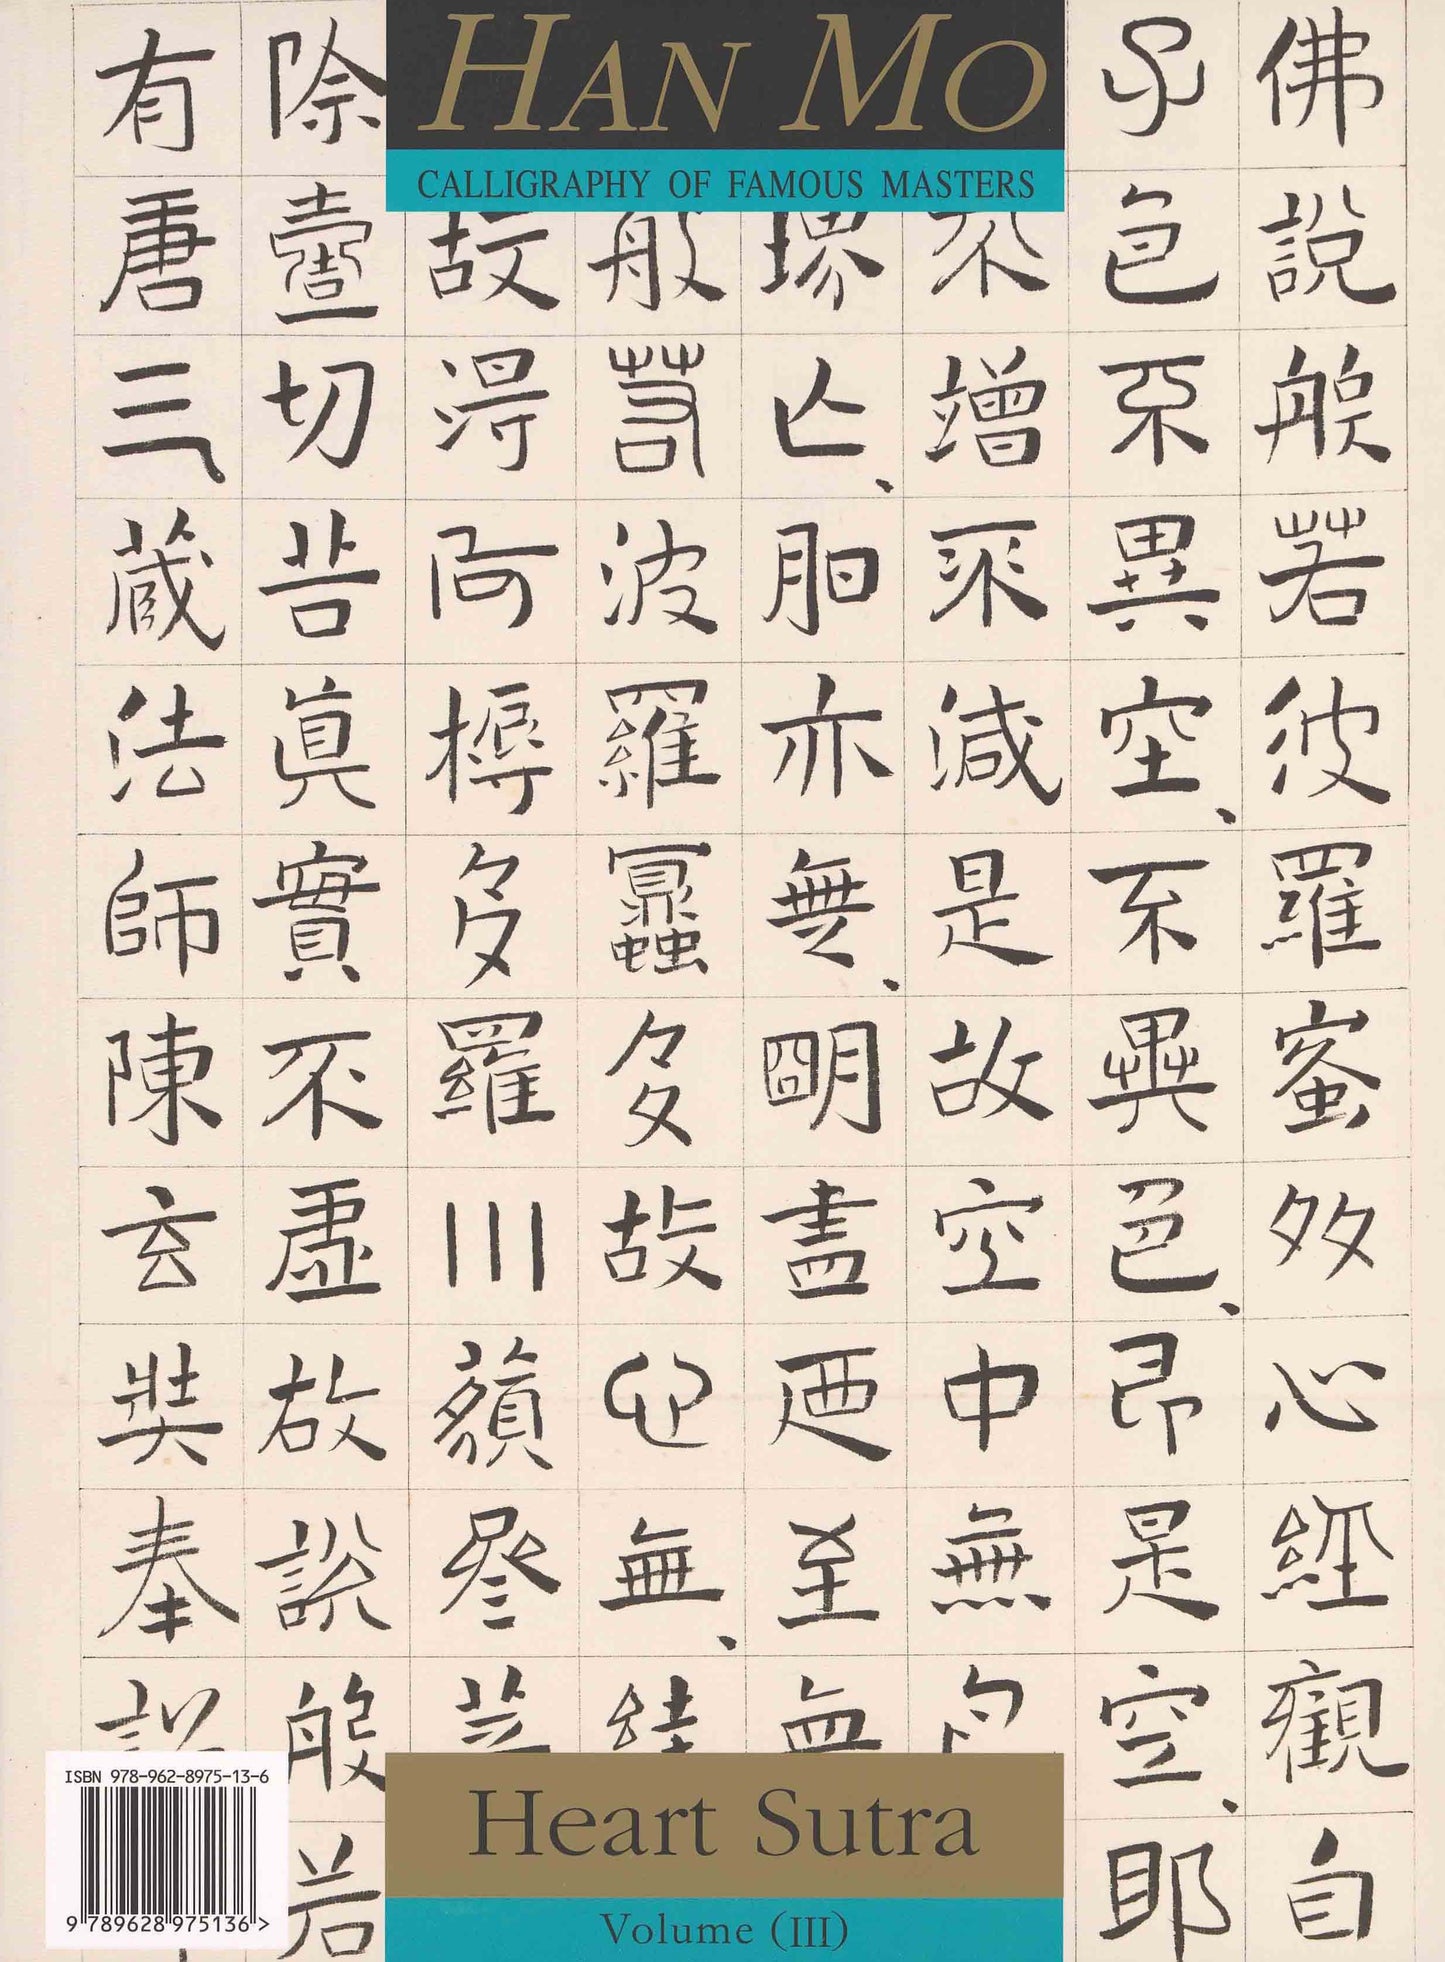 HAN MO
CALLIGRAPHY OF FAMOUS MASTERS
佛說般若波羅蜜多心經觀自
子色不異空、不異色、即是空、耶
不增不減是故空中無
界亡、明亦無、明盡廼至無
般若波羅蜜多故心無、罣
故得阿耨多羅三藐叄菩
除壹切苦眞實不虛故說般若
有唐三藏法師陳玄奘奉詔
Heart Sutra
Volume (III)
ISBN 978-962-8975-13-6
9 789628 975136 >